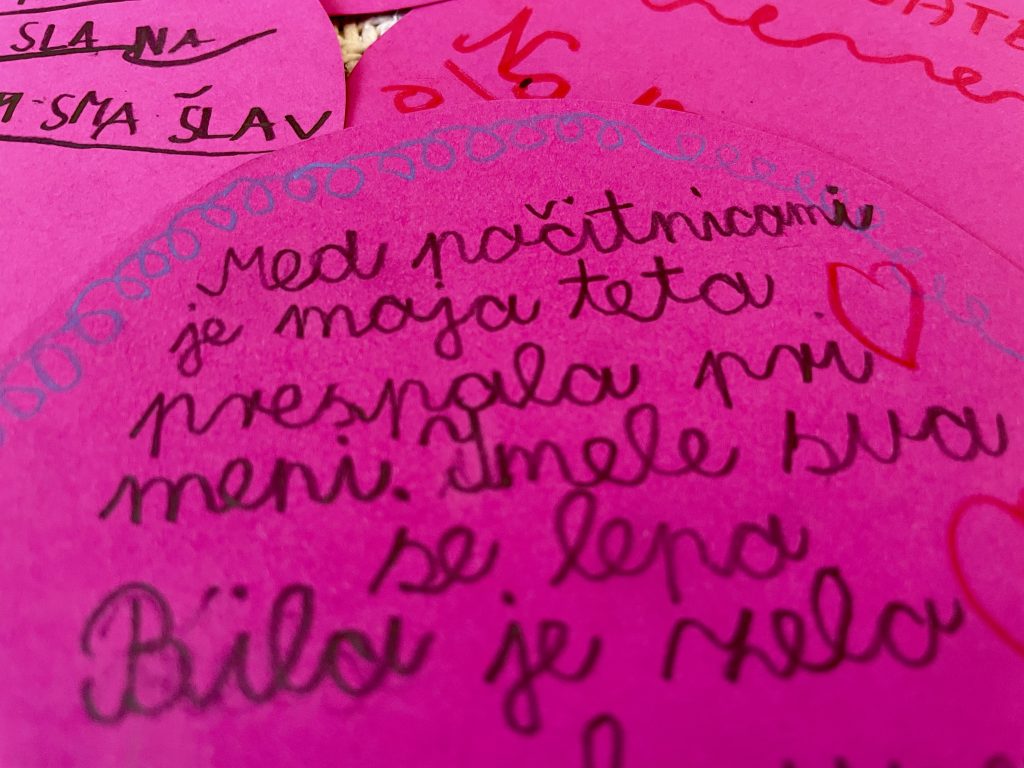 SLA NA
SMA ŠLAV
Med počitnicami
je moja teta
prespala pri
meni. Imele sva
se lepa
Bila je zelo